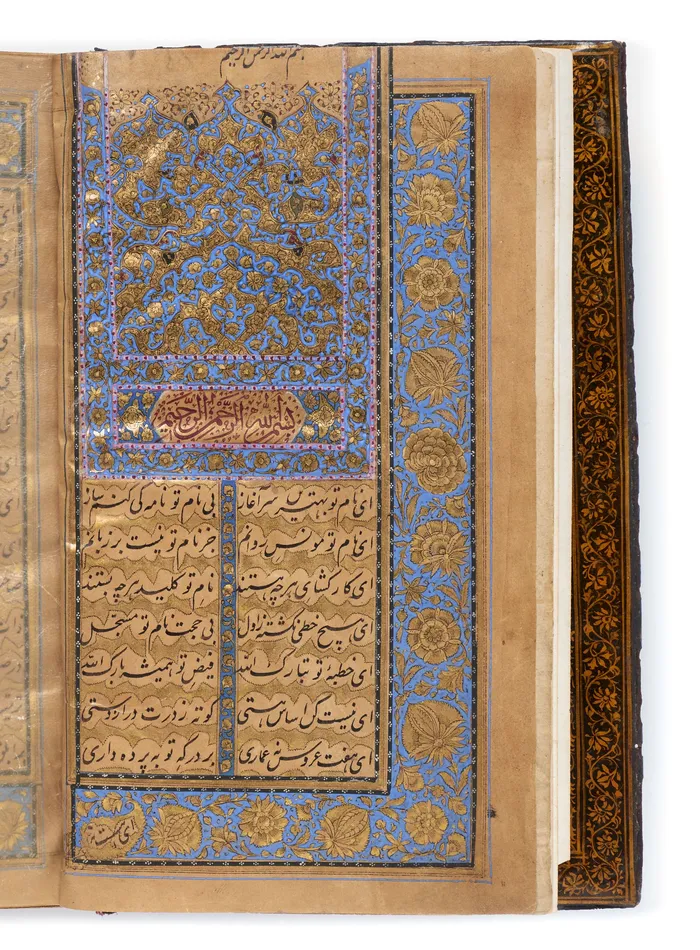 بسم الله الرحمن الرحیم
بسم الله الرحمن الرحیم
ای نام تو بهترین سرآغاز بی نام تو نامه کی کنم باز
ای نام تو مونس روانم جز نام تو نیست بر زبانم
ای کارکشای هر چه هستند نام تو کلید هر چه بستند
ای هیچ خطی نکشته ز اول بی حجت نام تو مسجل
ای خطبه تو تبارک الله فیض تو همیشه بارک الله
ای نیست کن اساس هستی کوته ز درت دراز دستی
ای هفت عروس نه عماری بر درگه تو به پرده داری
ای هست نه